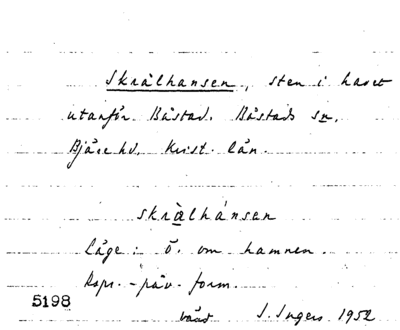 Skrålhansen, sten i havet
utanför Båstad. Båstads sn,
Bjäre hd. Krist. län.
skrålhánsen
Läge: ö. om hamnen.
form.
5198
I. Ingers 1952